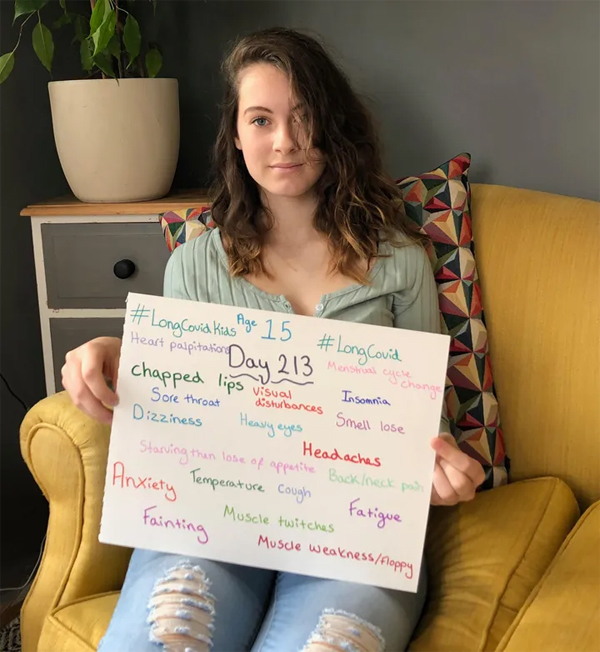 #LongCovidKids Age 15
#LongCovid
Heart palpitations Day 213 Menstrual cycle
change
chapped lips Visual
disturbances
Sore throat Insomnia
Dizziness Heavy eyes Smell lose
Starving then lose of appetite Headaches
Anxiety Temperature cough Back/neck pain
Fainting Muscle twitches Fatigue
Muscle weakness/floppy